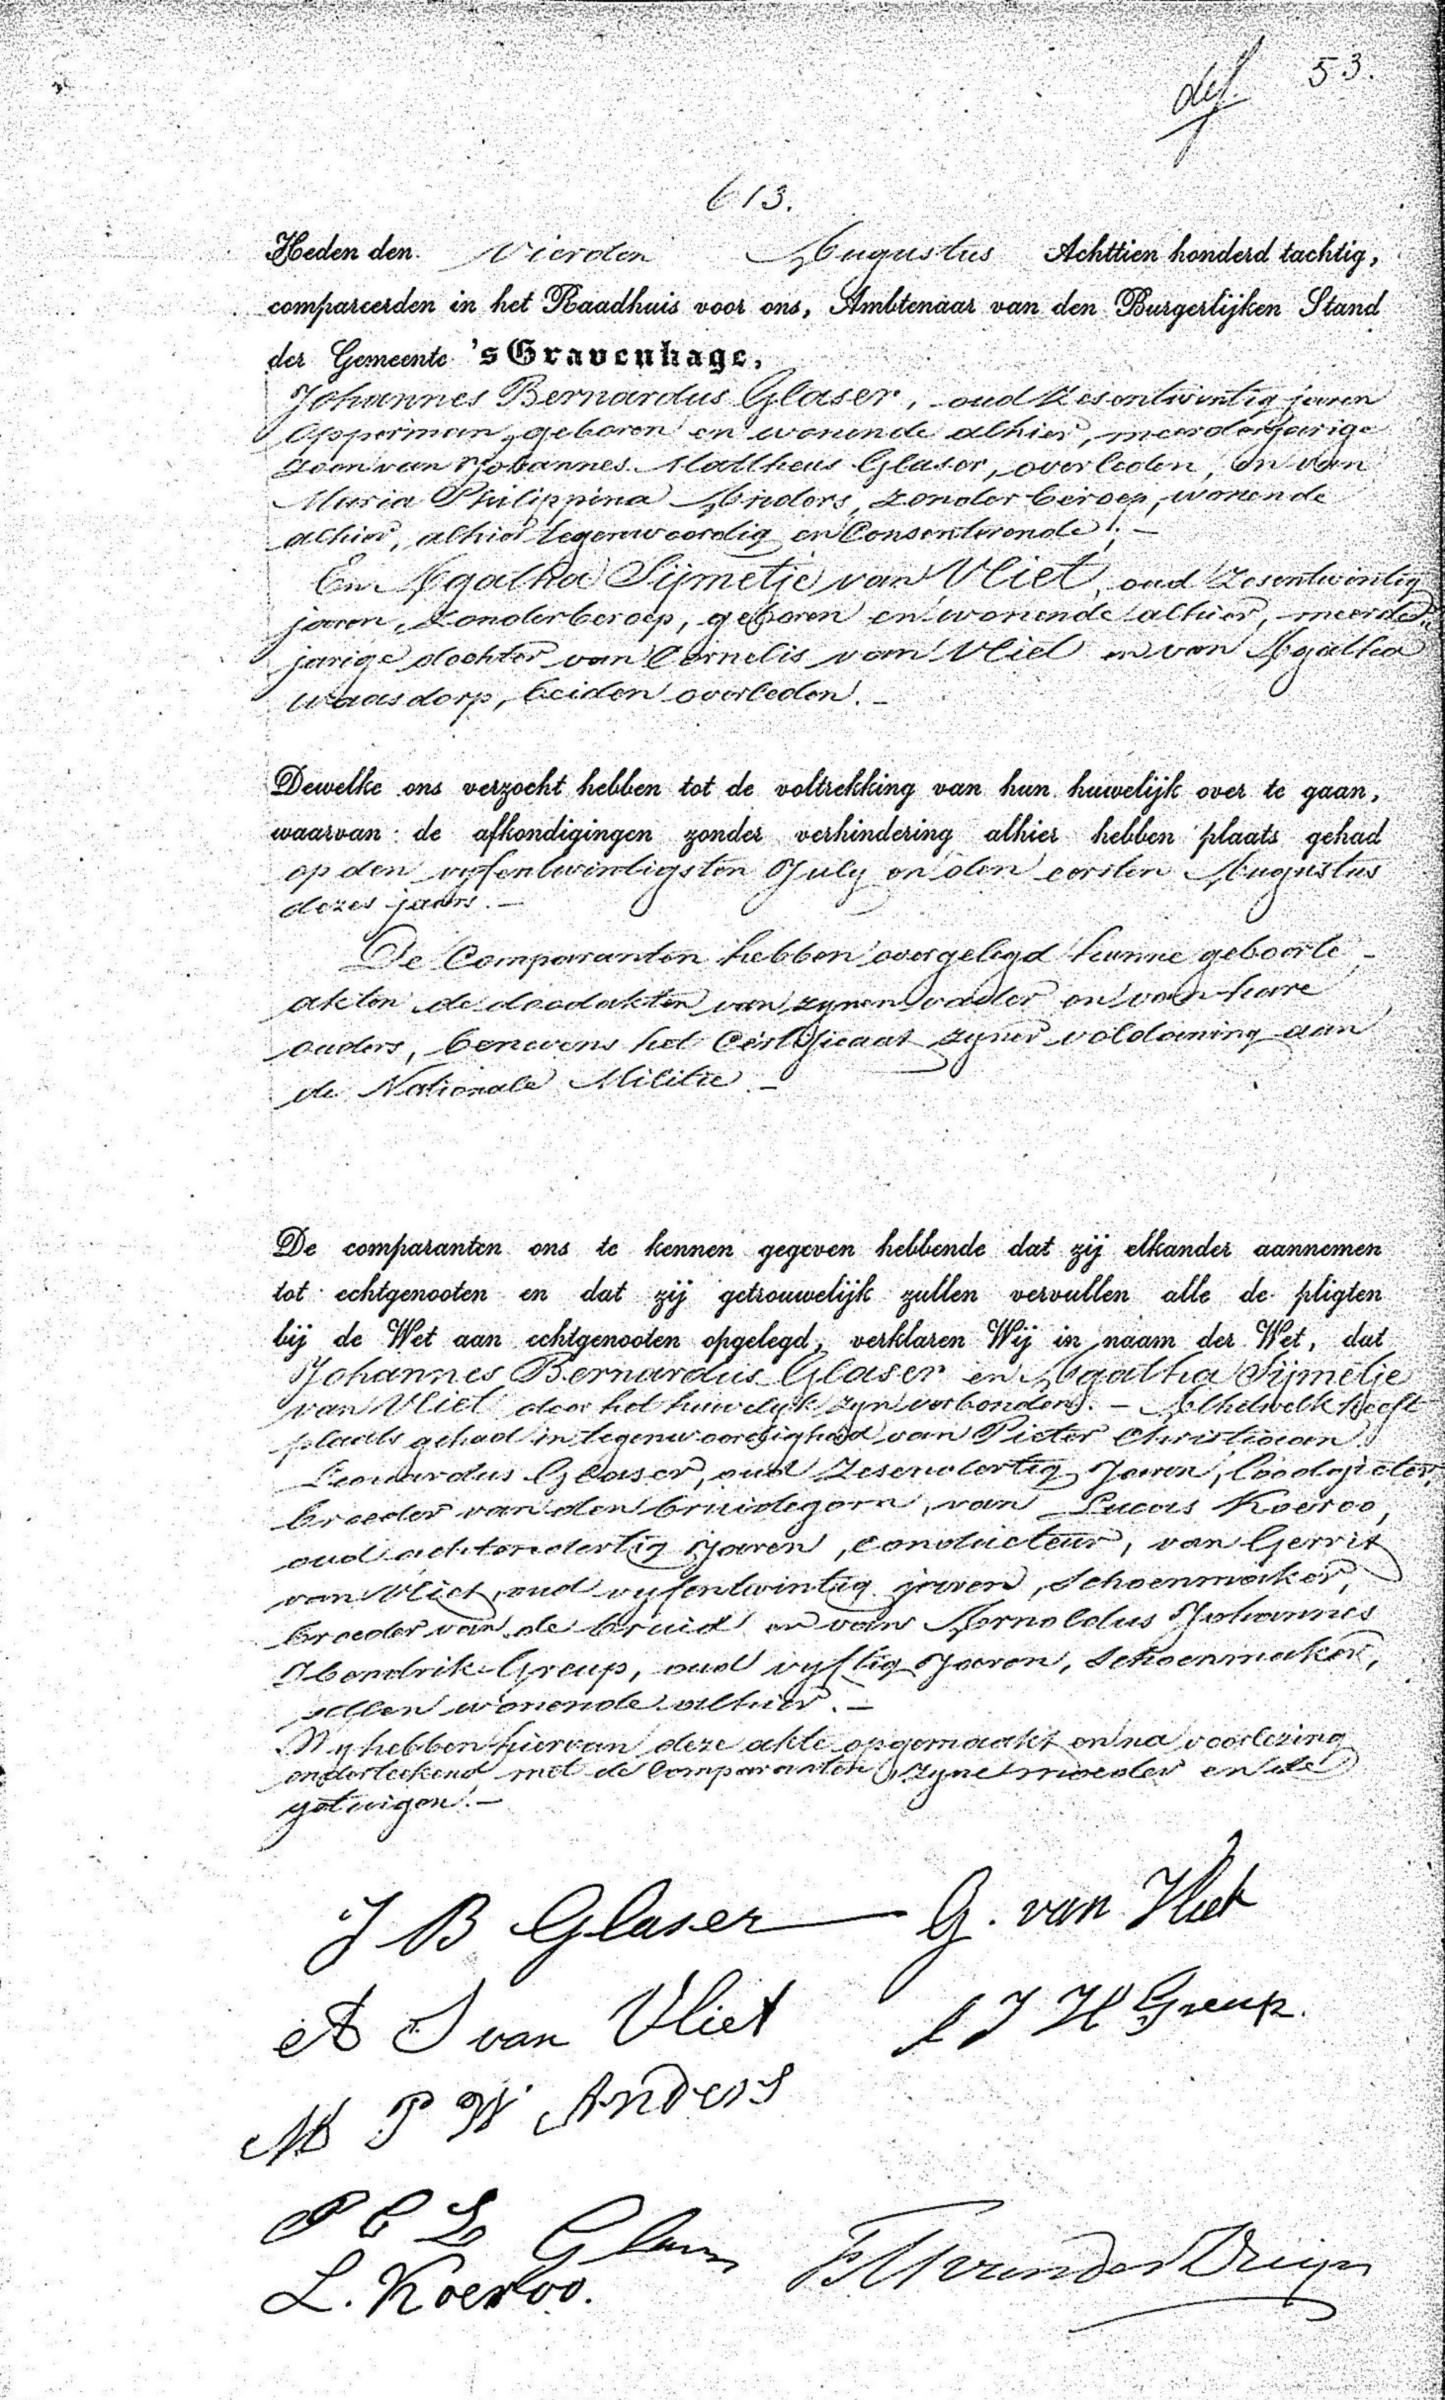 53.
613.
Heden den Vierden Augustus Achttien honderd tachtig,
compareerden in het Raadhuis voor ons, Ambtenaar van den Burgerlijken Stand
der Gemeente 's Gravenhage,
Johannes Bernardus Glaser, oud Zesentwintig jaren
Opperman, geboren en wonende alhier, meerderjarige
Zoon van Johannes Mattheus Glaser, overleden, en van
Maria Philippina Anders, zonder beroep, wonende
alhier, alhier tegenwoordig en Consenterende; —
En Agatha Sijmetje van Vliet, oud Zesentwintig
jaren, zonder beroep, geboren en wonende alhier, meerder-
jarige dochter van Cornelis van Vliet en van Agatha
Waasdorp, beiden overleden. —
Dewelke ons verzocht hebben tot de voltrekking van hun huwelijk over te gaan,
waarvan de afkondigingen zonder verhindering alhier hebben plaats gehad
op den vyfentwintigsten July en den eersten Augustus
dezes jaars. —
De Comparanten hebben overgelegd hunne geboorte-
akten de doodakten van zynen vader en van hare
ouders, benevens het Certificaat zyner voldoening aan
de Nationale Militie —
De comparanten ons te kennen gegeven hebbende dat zij elkander aannemen
tot echtgenooten en dat zij getrouwelijk zullen vervullen alle de pligten
bij de Wet aan echtgenooten opgelegd, verklaren Wij in naam der Wet, dat
Johannes Bernardus Glaser en Agatha Sijmetje
van Vliet door het huwelyk zyn verbonden. — Al hetwelk heeft
plaats gehad in tegenwoordigheid van Pieter Christiaan
Leonardus Glaser, oud Zesendertig Jaren, loodgieter,
broeder van den bruidegom, van Lucas Koeroo,
oud achtendertig Jaren, conducteur, van Gerrit
van Vliet, oud vyfentwintig jaren, Schoenmaker,
broeder van de bruid en van Arnoldus Johannes
Hendrik Greup, oud vyftig Jaren, Schoenmaker,
allen wonende alhier. —
Wy hebben hiervan deze akte opgemaakt en na voorlezing
onderteekend met de Comparanten, zyne moeder en de
getuigen. —
J B Glaser G. van Vliet
A S van Vliet A J H Greup.
M P W Anders
P C L Glaser
L. Koeroo.